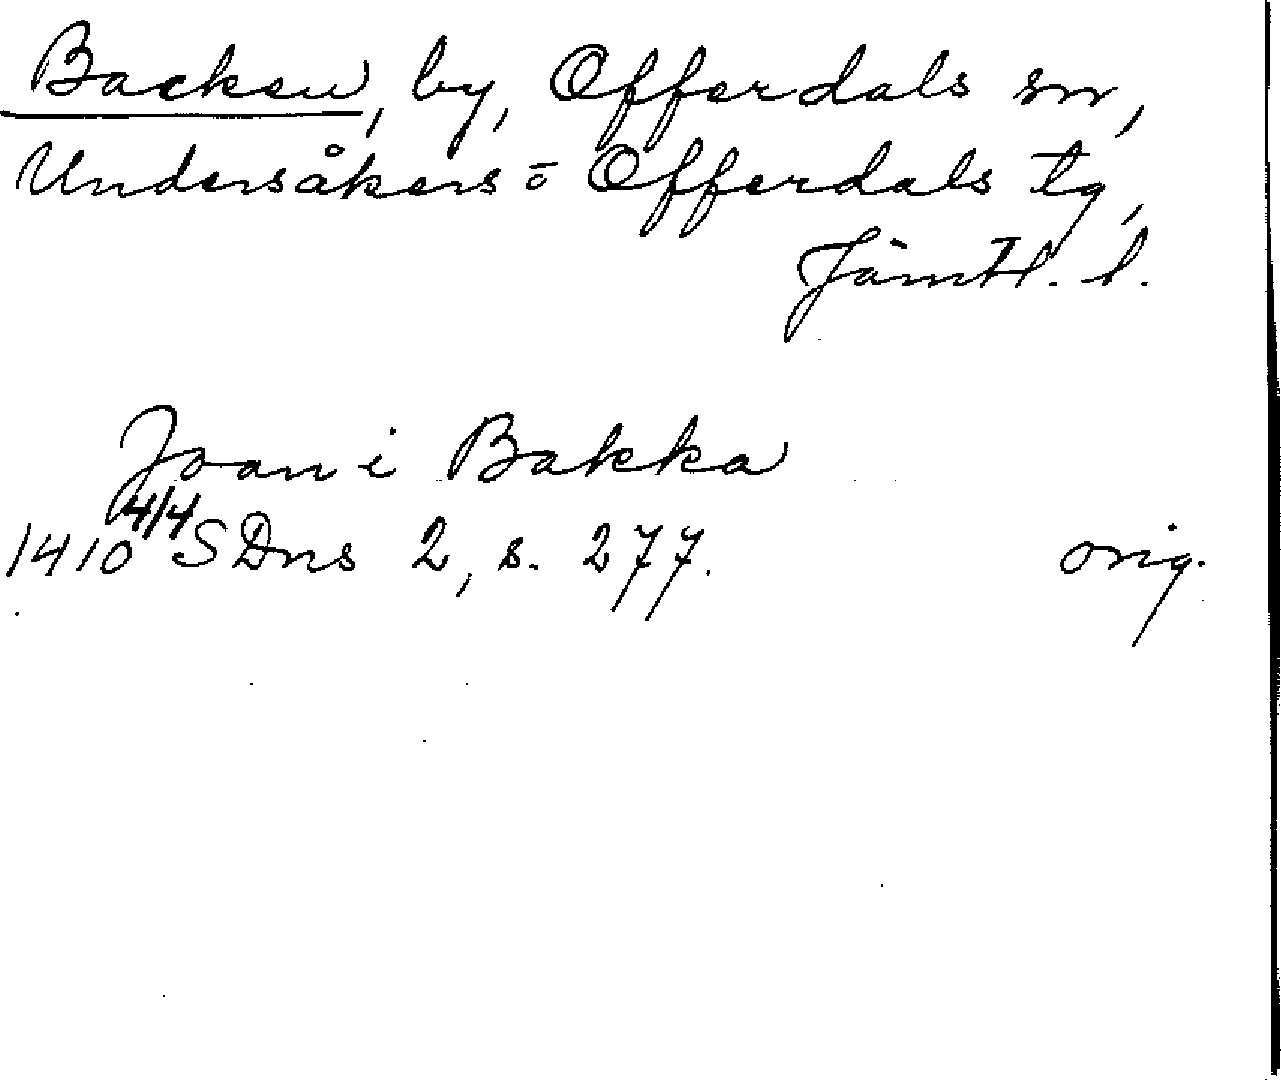 Backen, by, Offerdals sn,
Undersåkers o Offerdals tg,
Jämtl. l.
Joan i Bakka
1410 4/4 SDns 2, s. 277. orig.